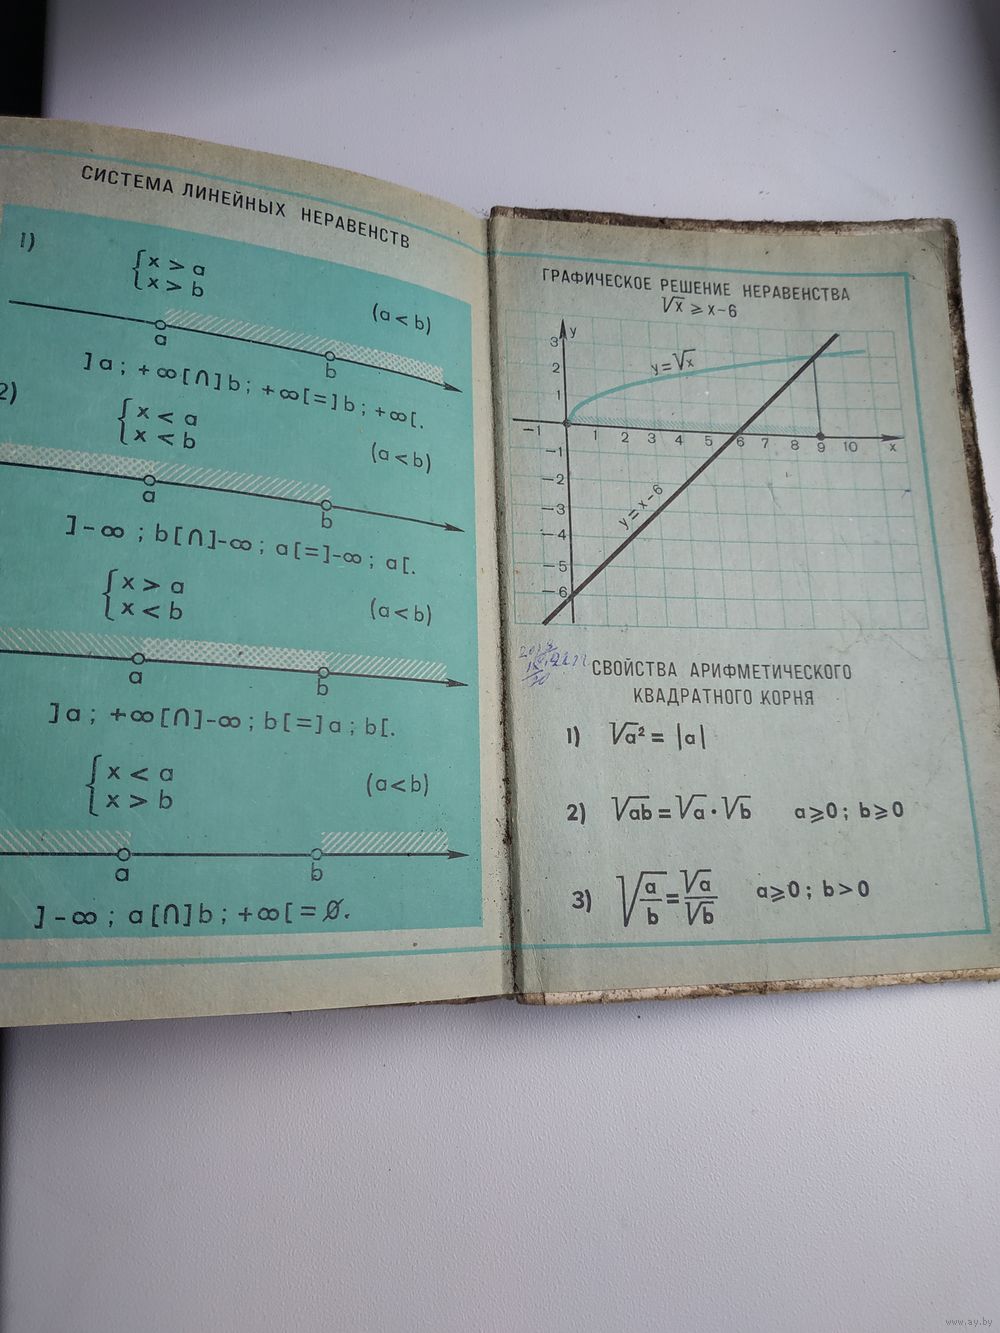 СИСТЕМА ЛИНЕЙНЫХ НЕРАВЕНСТВ
1)
{x > a
{x > b
(a < b)
a
b
]a; +∞[∩]b; +∞[=]b; +∞[.
2)
{x < a
{x < b
(a < b)
a
b
]-∞; b[∩]-∞; a[=]-∞; a[.
{x > a
{x < b
(a < b)
a
b
]a; +∞[∩]-∞; b[=]a; b[.
{x < a
{x > b
(a < b)
a
b
]-∞; a[∩]b; +∞[= ∅.
ГРАФИЧЕСКОЕ РЕШЕНИЕ НЕРАВЕНСТВА
√x ⩾ x-6
y
3
2
1
y=√x
-1
1 2 3 4 5 6 7 8 9 10 x
-1
-2
-3
-4
-5
-6
y=x-6
СВОЙСТВА АРИФМЕТИЧЕСКОГО
КВАДРАТНОГО КОРНЯ
1) √a² = |a|
2) √ab = √a · √b a⩾0; b⩾0
3) √(a/b) = √a/√b a⩾0; b>0
www.ay.by